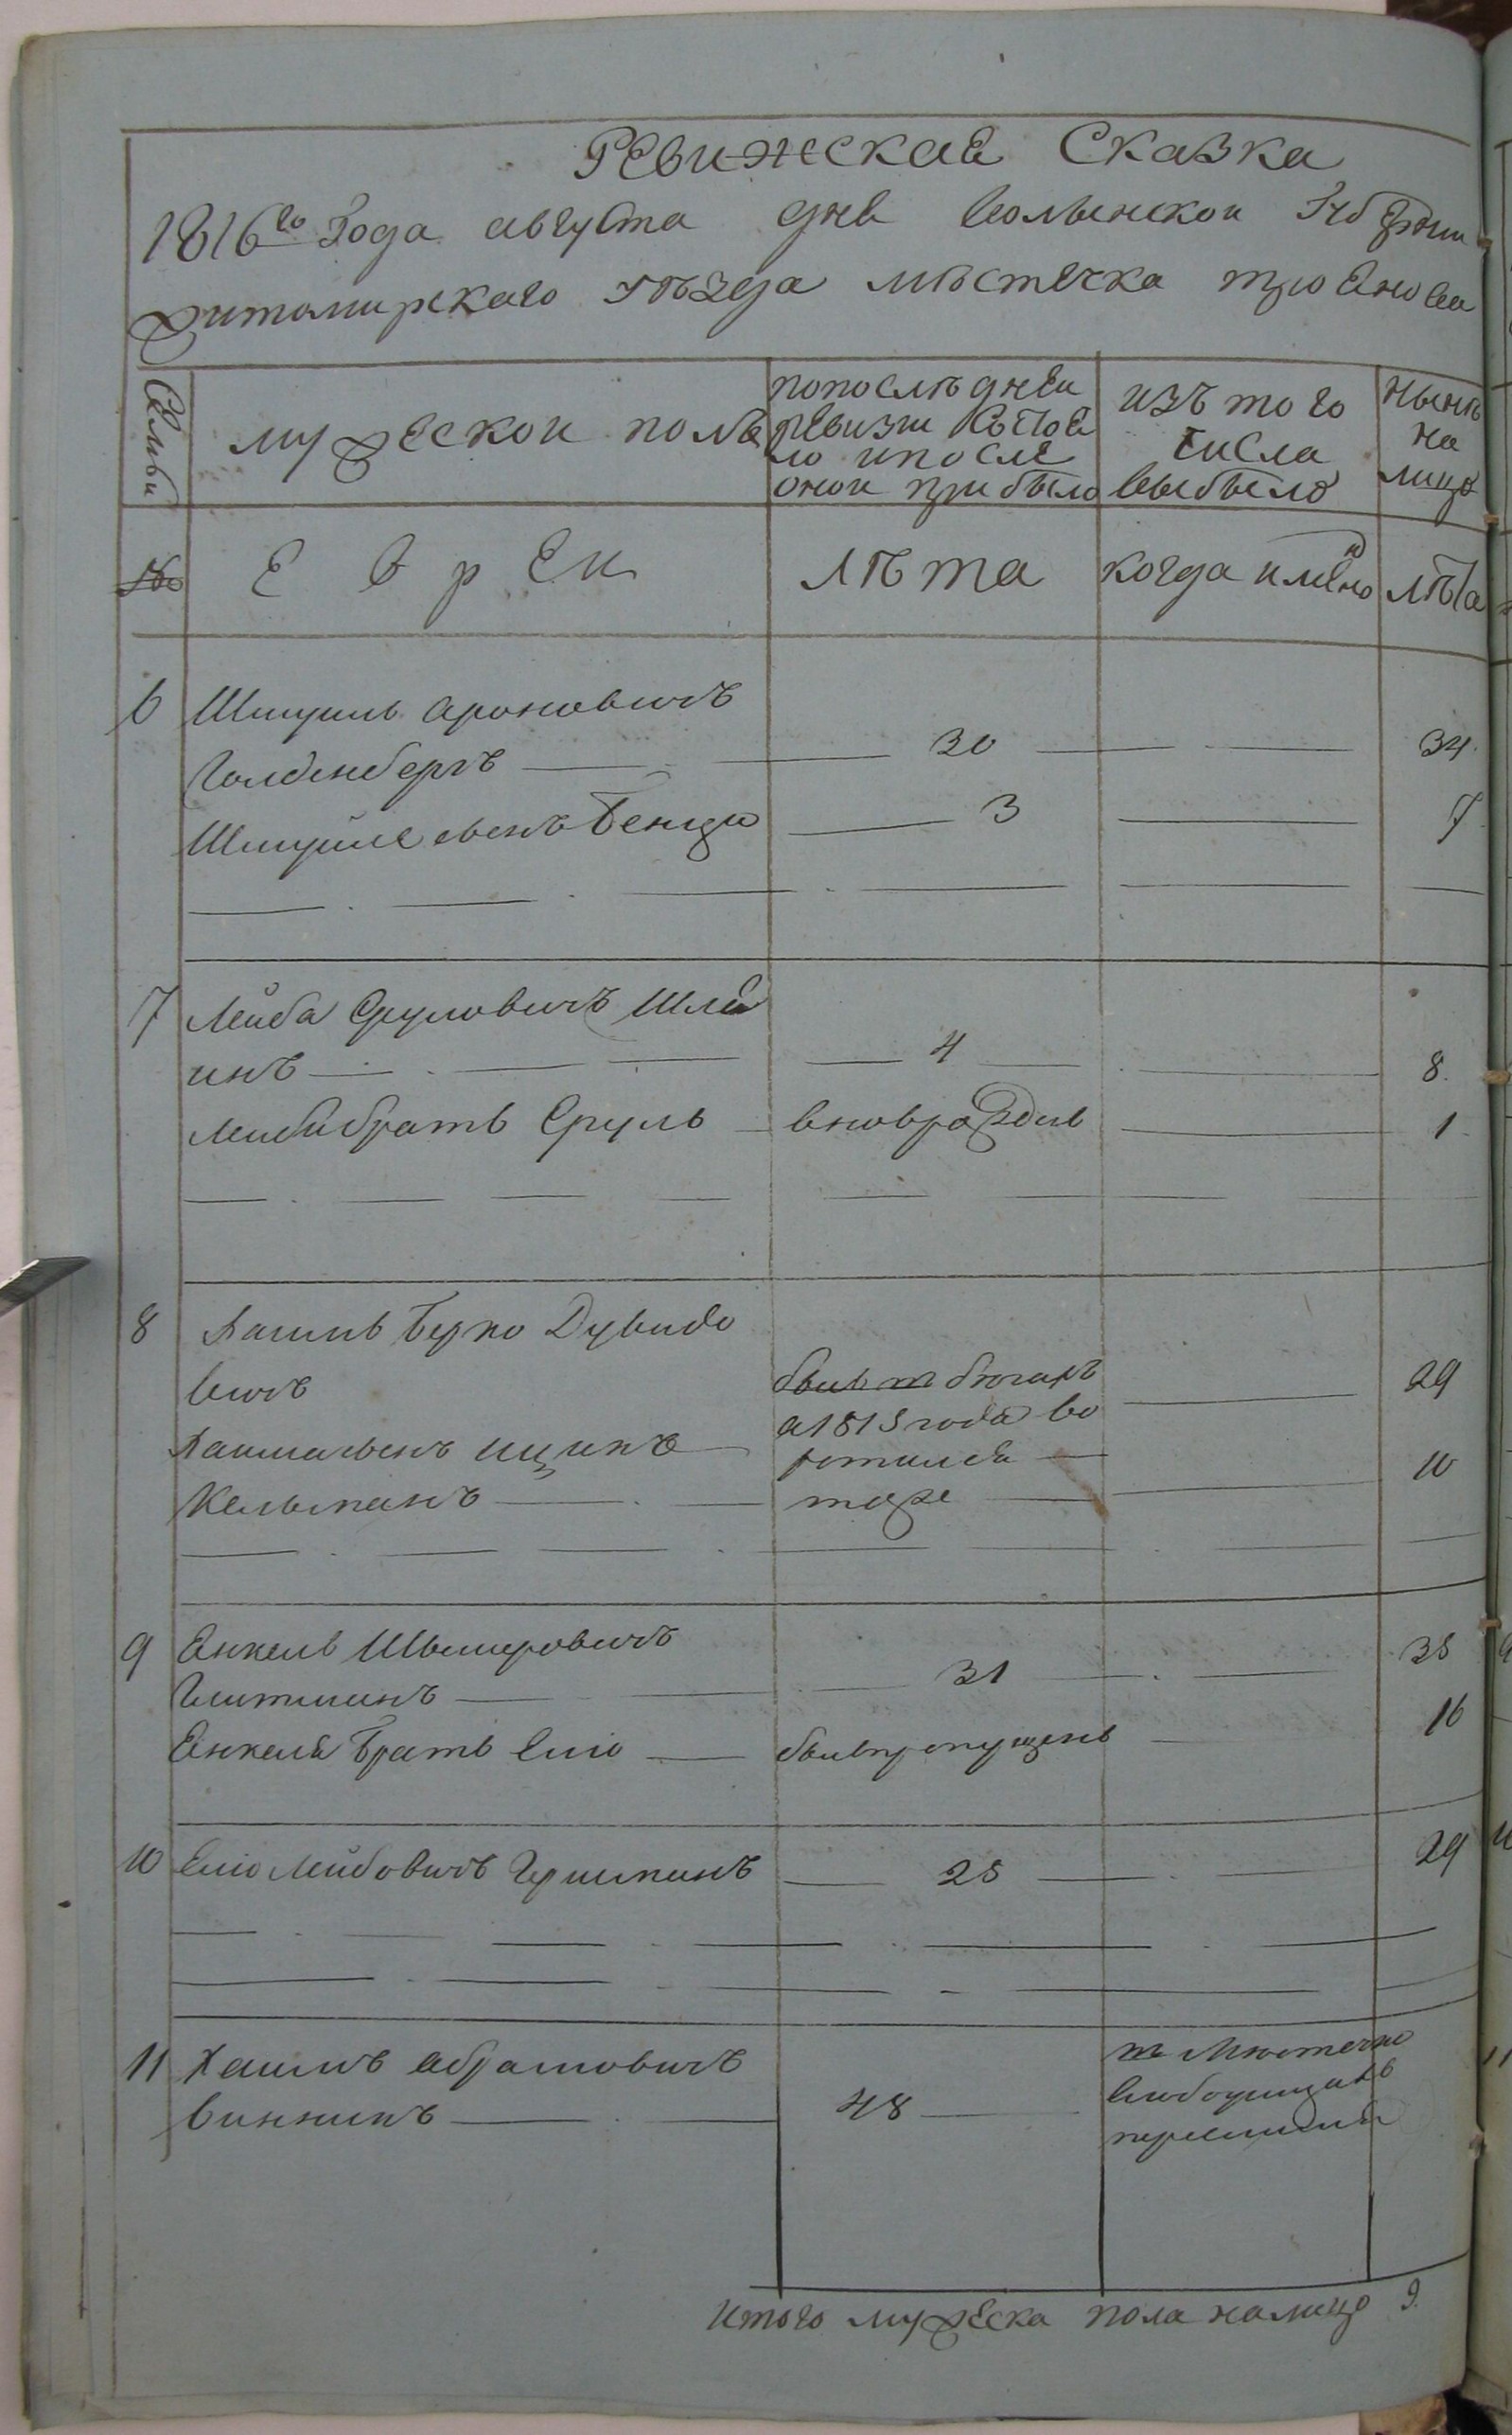 Ревижская Сказка
1816го Года августа дня волынской Губернии
житомирского уѣзда мѣстечка трояновa
Семьи
мужескои полъ
попослѣднеи
ревизии состоя
ло ипосле
онои прибыло
изъ того
числа
выбыло
нынѣ
на
лицо
№
Евреи
лѣта
когда имѣнно
лѣта
6 Шмуиль ароновичъ
Голденбергъ 30 34
Шмуиля сынъ Бенцю 3 7
7 Лейба Сруловичъ Шля
инъ 4 8
Лейби братъ Сруль вновьрожденъ 1
8 Хаимъ Берко Дувидо
вичъ былъ в бѣгахъ 29
а1813года во
ротился
Хаима сынъ ицикъ 10
Кельманъ тоже
9 Енкель Шмулевичъ
31 35
Енкеля Братъ Елiо былъпропущенъ 16
10 Елiо Лейбовичъ Гершманъ 25 29
11 Хаимъ абрамовичъ
винникъ 48
в Мѣстечко
перешолъ
итого мужеска пола налицо 9